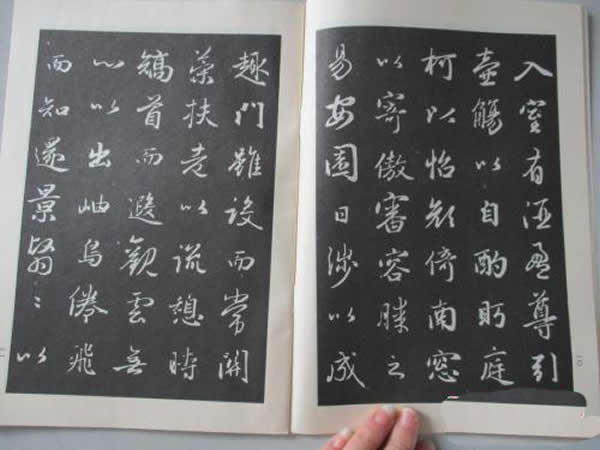 入室有酒盈尊引
壺觴以自酌眄庭
柯以怡顏倚南窓
以寄傲審容膝之
易安園日涉以成
趣門雖設而常開
策扶老以流憩時
矯首而遐觀雲無
心以出岫鳥倦飛
而知還景翳〻以
10